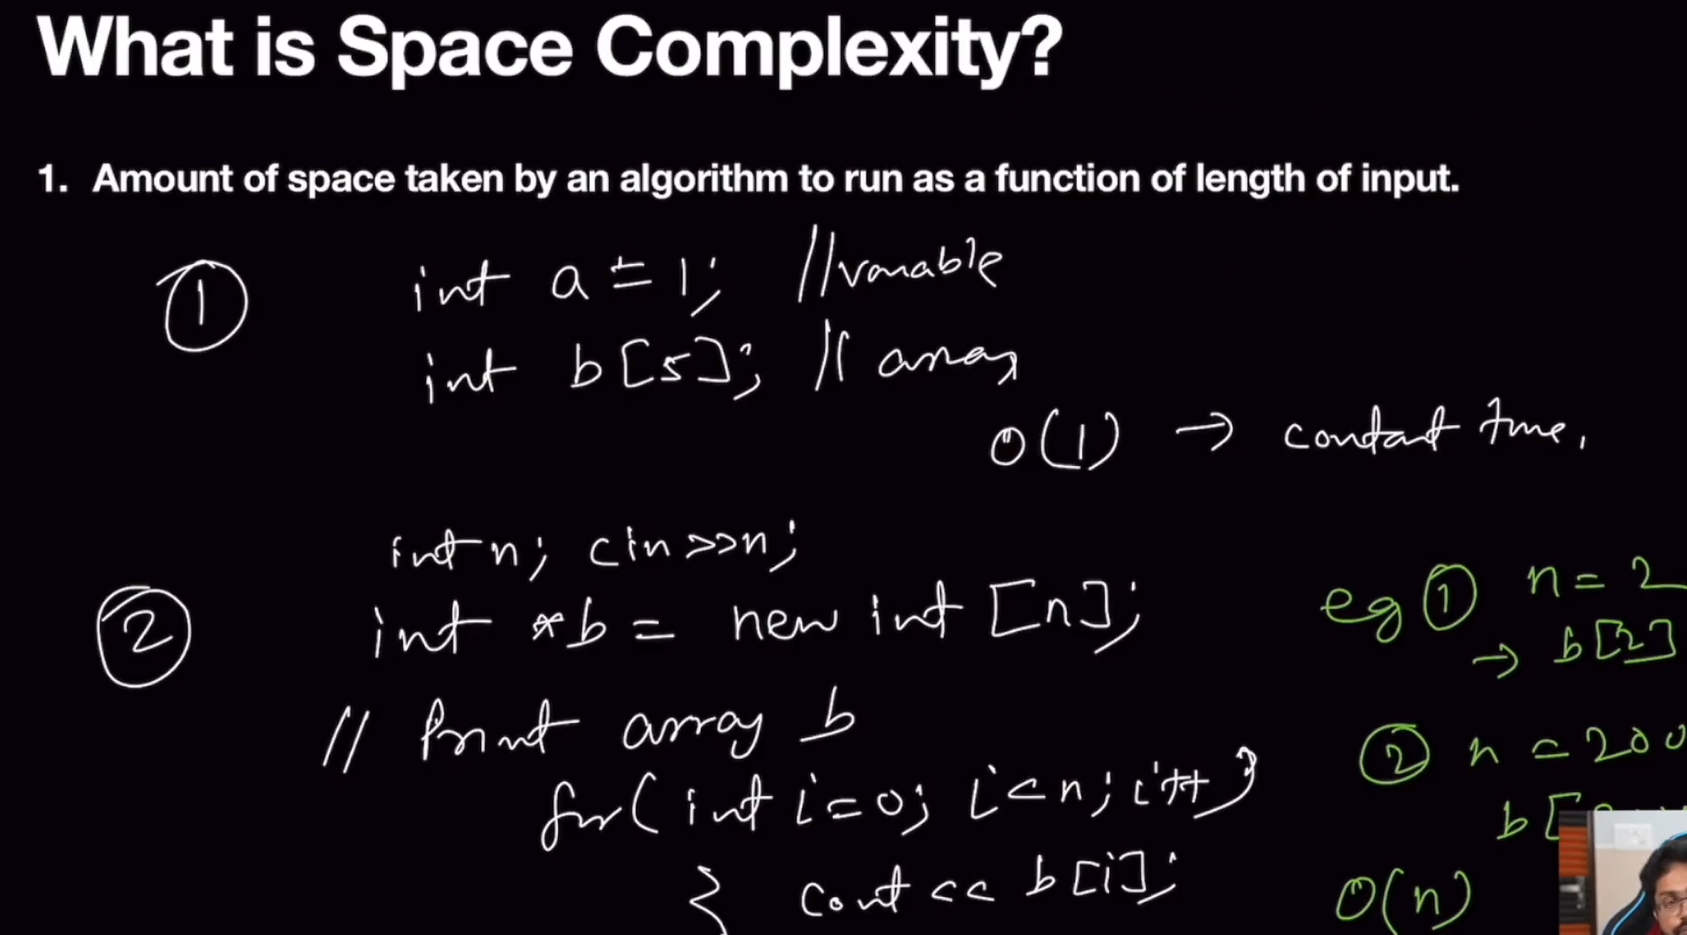 What is Space Complexity?
1. Amount of space taken by an algorithm to run as a function of length of input.
① int a = 1; // variable
int b[5]; // array
O(1) → constant time.
int n; cin >> n;
② int *b = new int [n];
// Print array b
for( int i=0; i<n; i++)
{ cout << b[i];
eg ① n = 2
→ b[2]
② n = 200
b[
O(n)